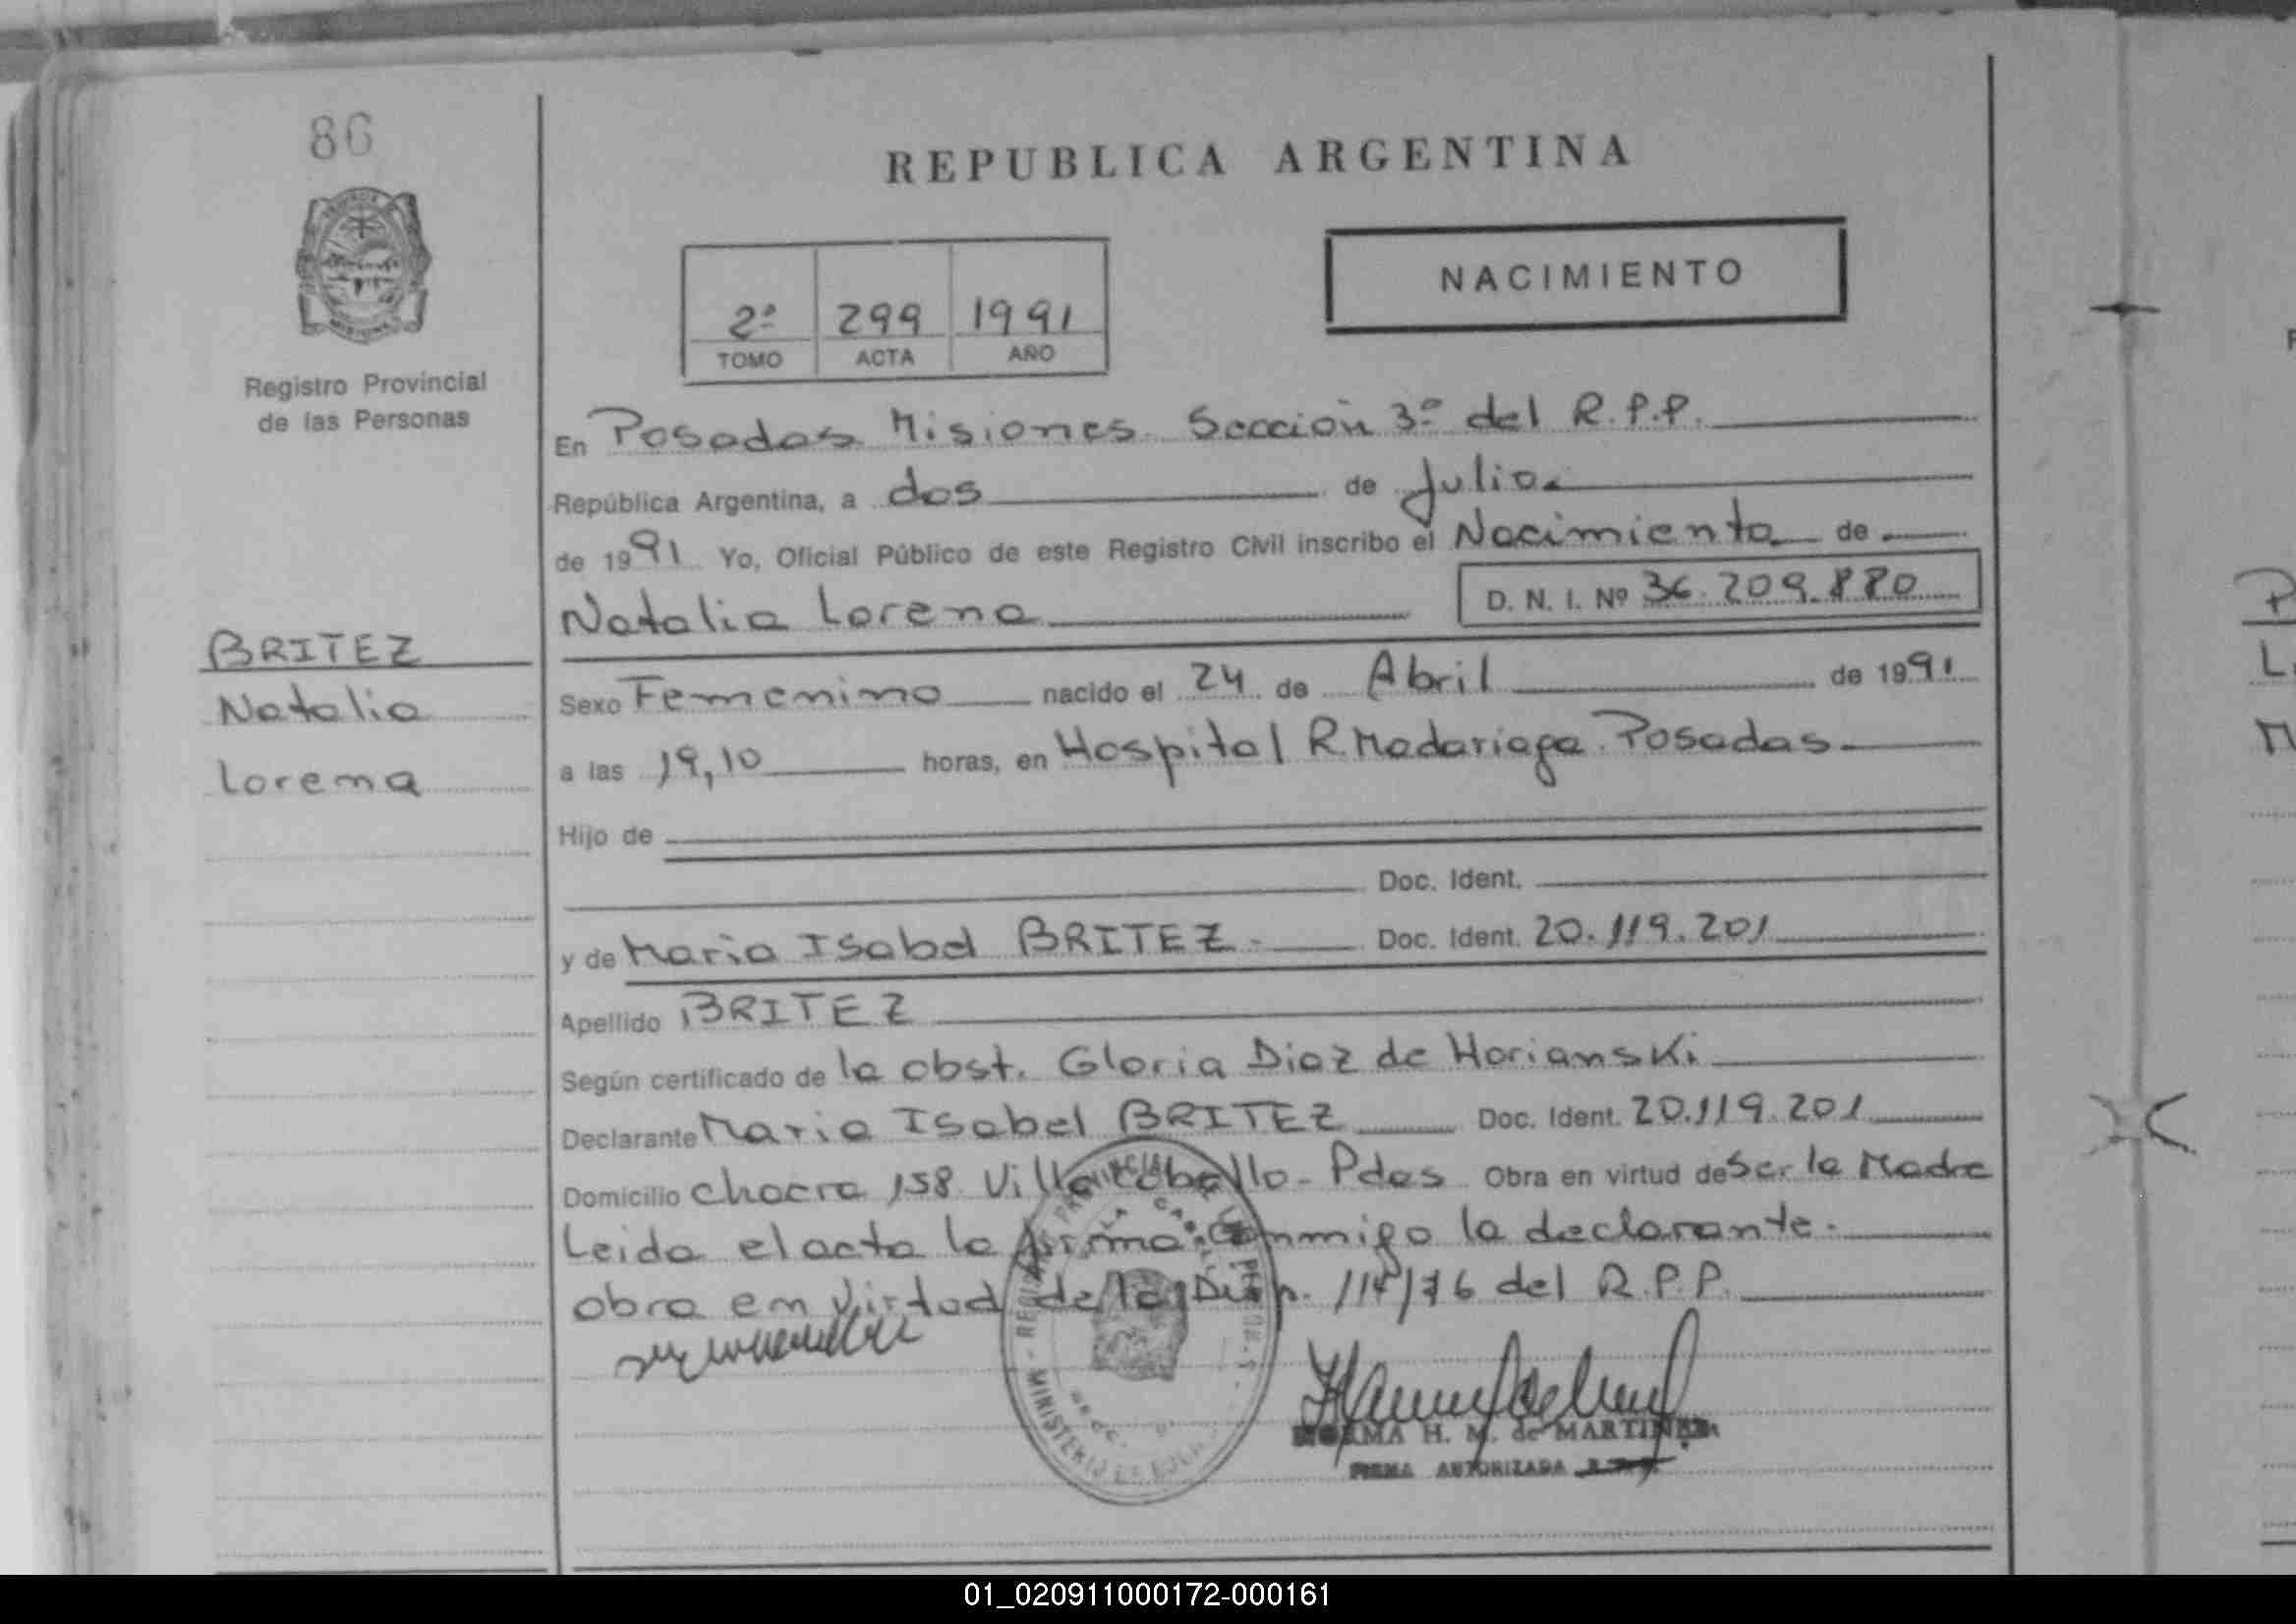 86
REPUBLICA ARGENTINA
NACIMIENTO
2º 299 1991
TOMO ACTA AÑO
Registro Provincial
de las Personas
En Posadas Misiones. Sección 3º del R.P.P.
República Argentina, a dos de Julio.
de 1991 Yo, Oficial Público de este Registro Civil inscribo el Nacimiento de
Natalia Lorena D. N. I. Nº 36.209.880
BRITEZ
Natalia
Lorena
Sexo Femenino nacido el 24 de Abril de 1991
a las 19,10 horas, en Hospital R. Madariaga. Posadas.
Hijo de
Doc. Ident.
y de Maria Isabel BRITEZ. Doc. Ident. 20.119.201
Apellido BRITEZ
Según certificado de la obst. Gloria Diaz de Horianski
Declarante Maria Isabel BRITEZ Doc. Ident. 20.119.201
Domicilio chacra 158 Villa Cabello - Pdas Obra en virtud de Ser la Madre
Leida el acta la firma conmigo la declarante.
obra en virtud de la Disp. 114/76 del R.P.P.
NORMA H. M. de MARTINEZ
FIRMA AUTORIZADA
MINISTERIO DE
01_020911000172-000161